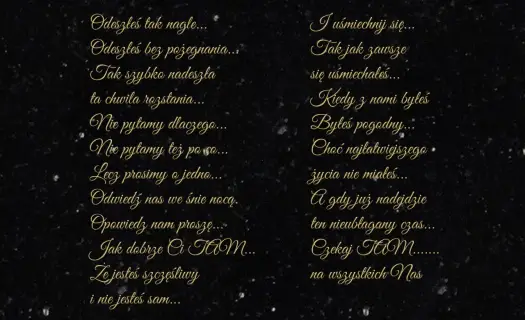 Odeszłeś tak nagle...
Odeszłeś bez pożegnania...
Tak szybko nadeszła
ta chwila rozstania...
Nie pytamy dlaczego...
Nie pytamy też po co...
Lecz prosimy o jedno...
Odwiedź nas we śnie nocą.
Opowiedz nam proszę...
Jak dobrze Ci TAM...
Że jesteś szczęśliwy
i nie jesteś sam...
I uśmiechnij się...
Tak jak zawsze
się uśmiechałeś...
Kiedy z nami byłeś
Byłeś pogodny...
Choć najłatwiejszego
życia nie miałeś...
A gdy już nadejdzie
ten nieubłagany czas...
Czekaj TAM.......
na wszystkich Nas